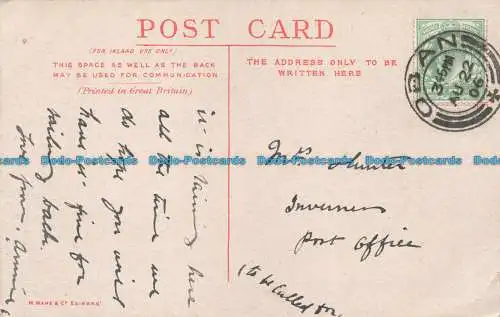 POST CARD
(FOR INLAND USE ONLY)
THIS SPACE AS WELL AS THE BACK
MAY BE USED FOR COMMUNICATION
(Printed in Great Britain)
THE ADDRESS ONLY TO BE
WRITTEN HERE
OBAN
3.15PM
AU 22
06
it is raining here
all the time we
do hope you will
have it fine for
coming back.
Love from Annie
Mrs Hunter
Inverness
Post Office
(to be called for)
M. WANE & CO EDINBRO'
Dodo-Postcards Dodo-Postcards Dodo-Postcards Dodo-Postcards